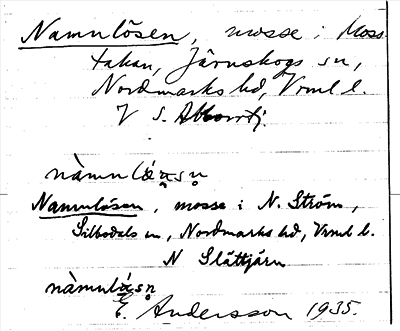 Namnlösen, mosse i Moss
takan, Järnskogs sn,
Nordmarks hd, Vrml l.
V S. Abborrtj.
nàmnlɷ́ạsṇ
Namnlösen, mosse i N. Ström,
Silbodals sn, Nordmarks hd, Vrml l.
N Slättjärn
nàmnlásṇ
E. Andersson 1935.